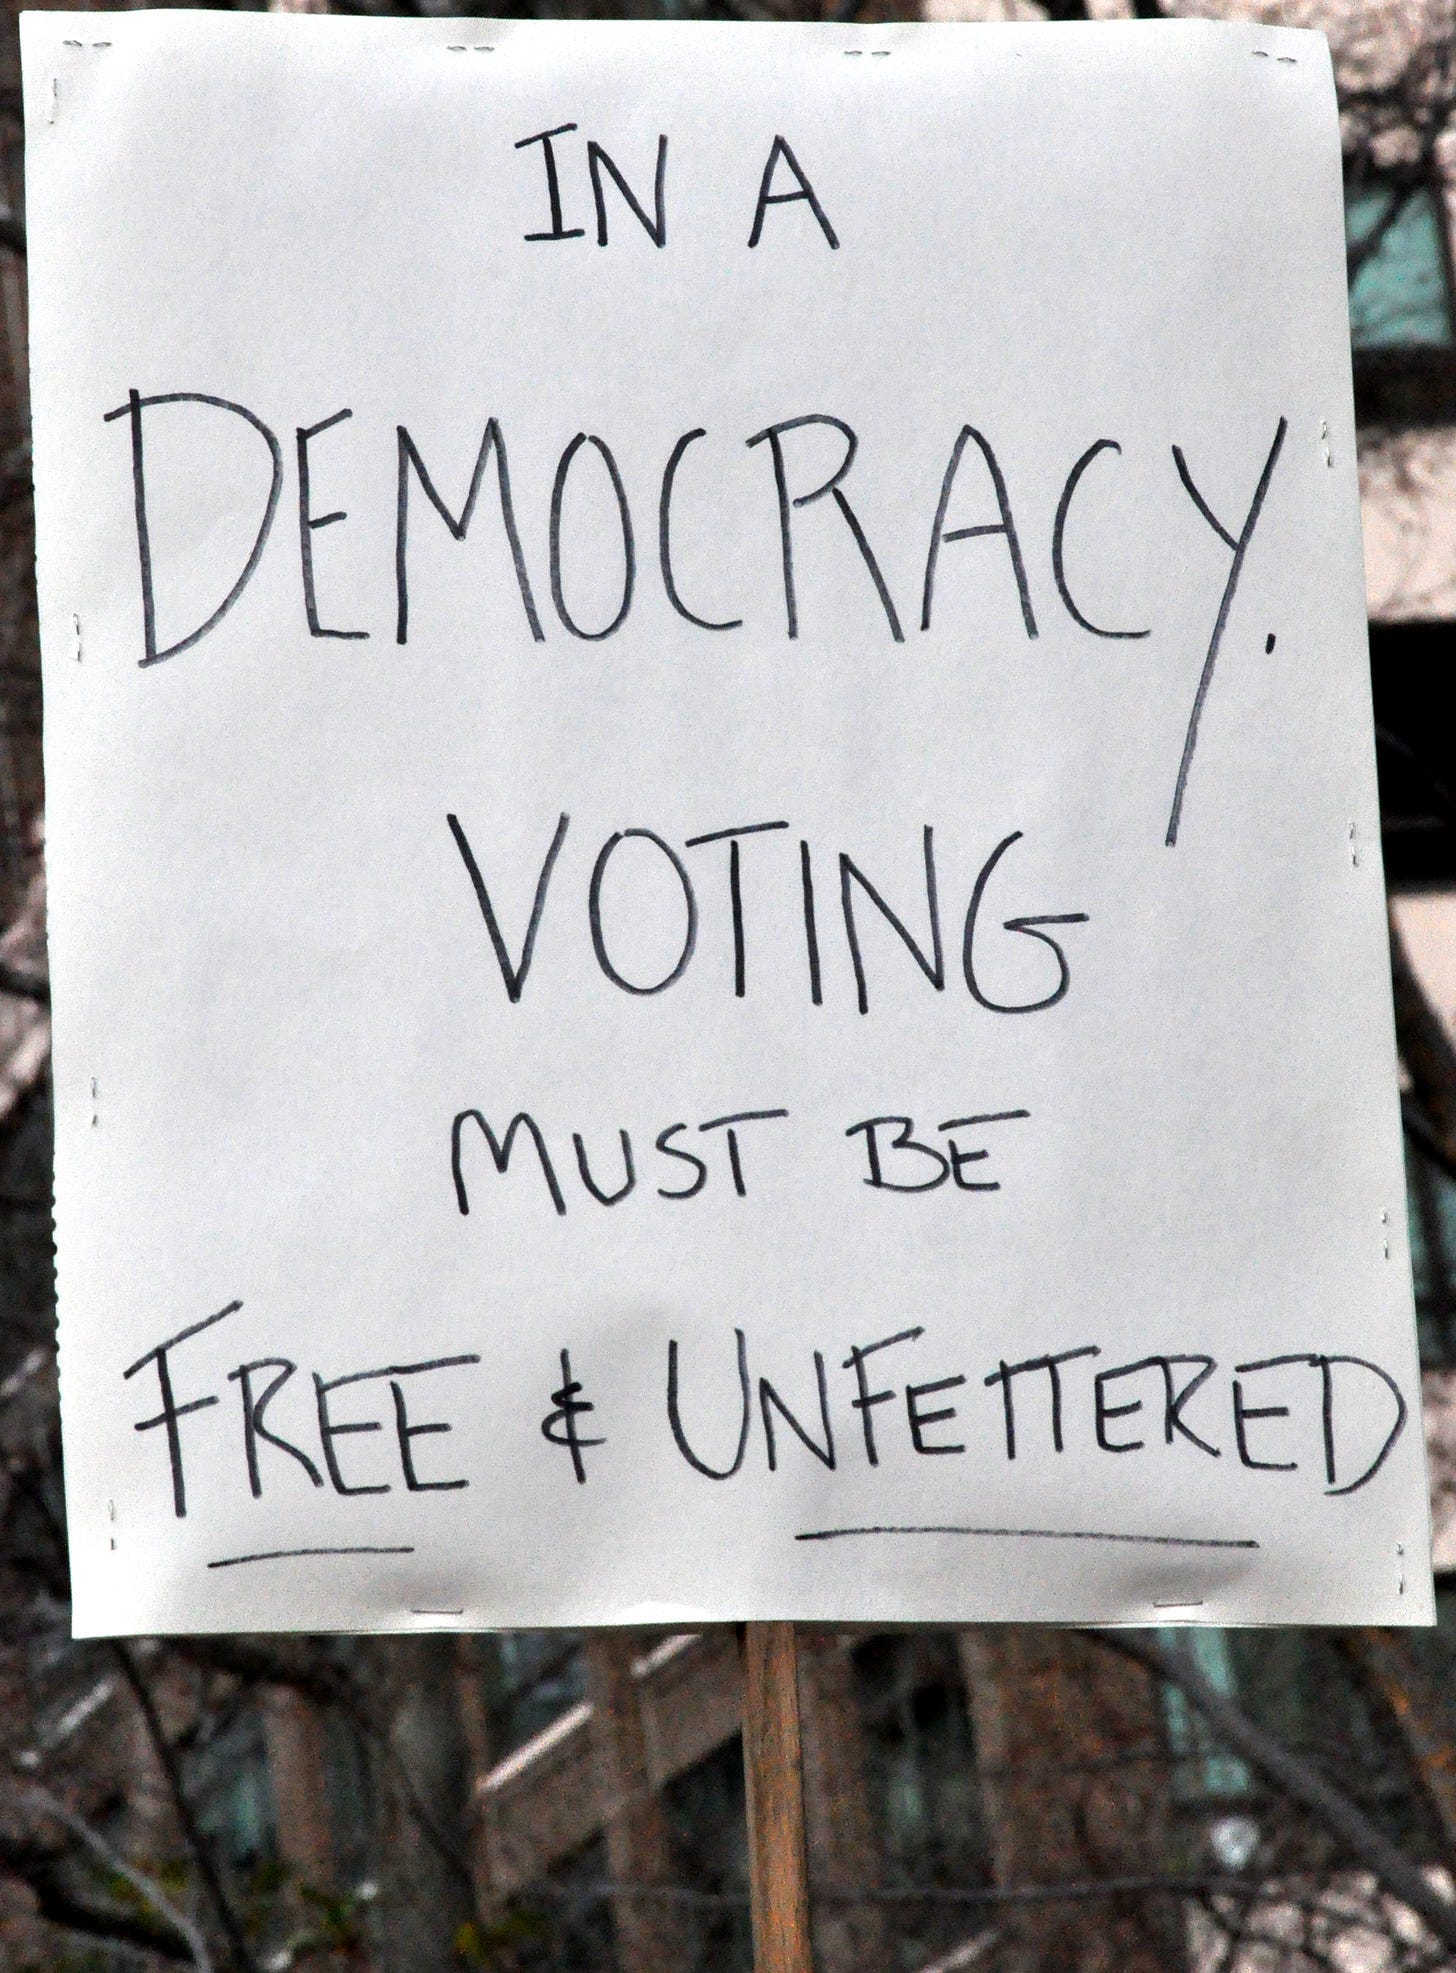 IN A
DEMOCRACY.
VOTING
MUST BE
FREE & UNFETTERED